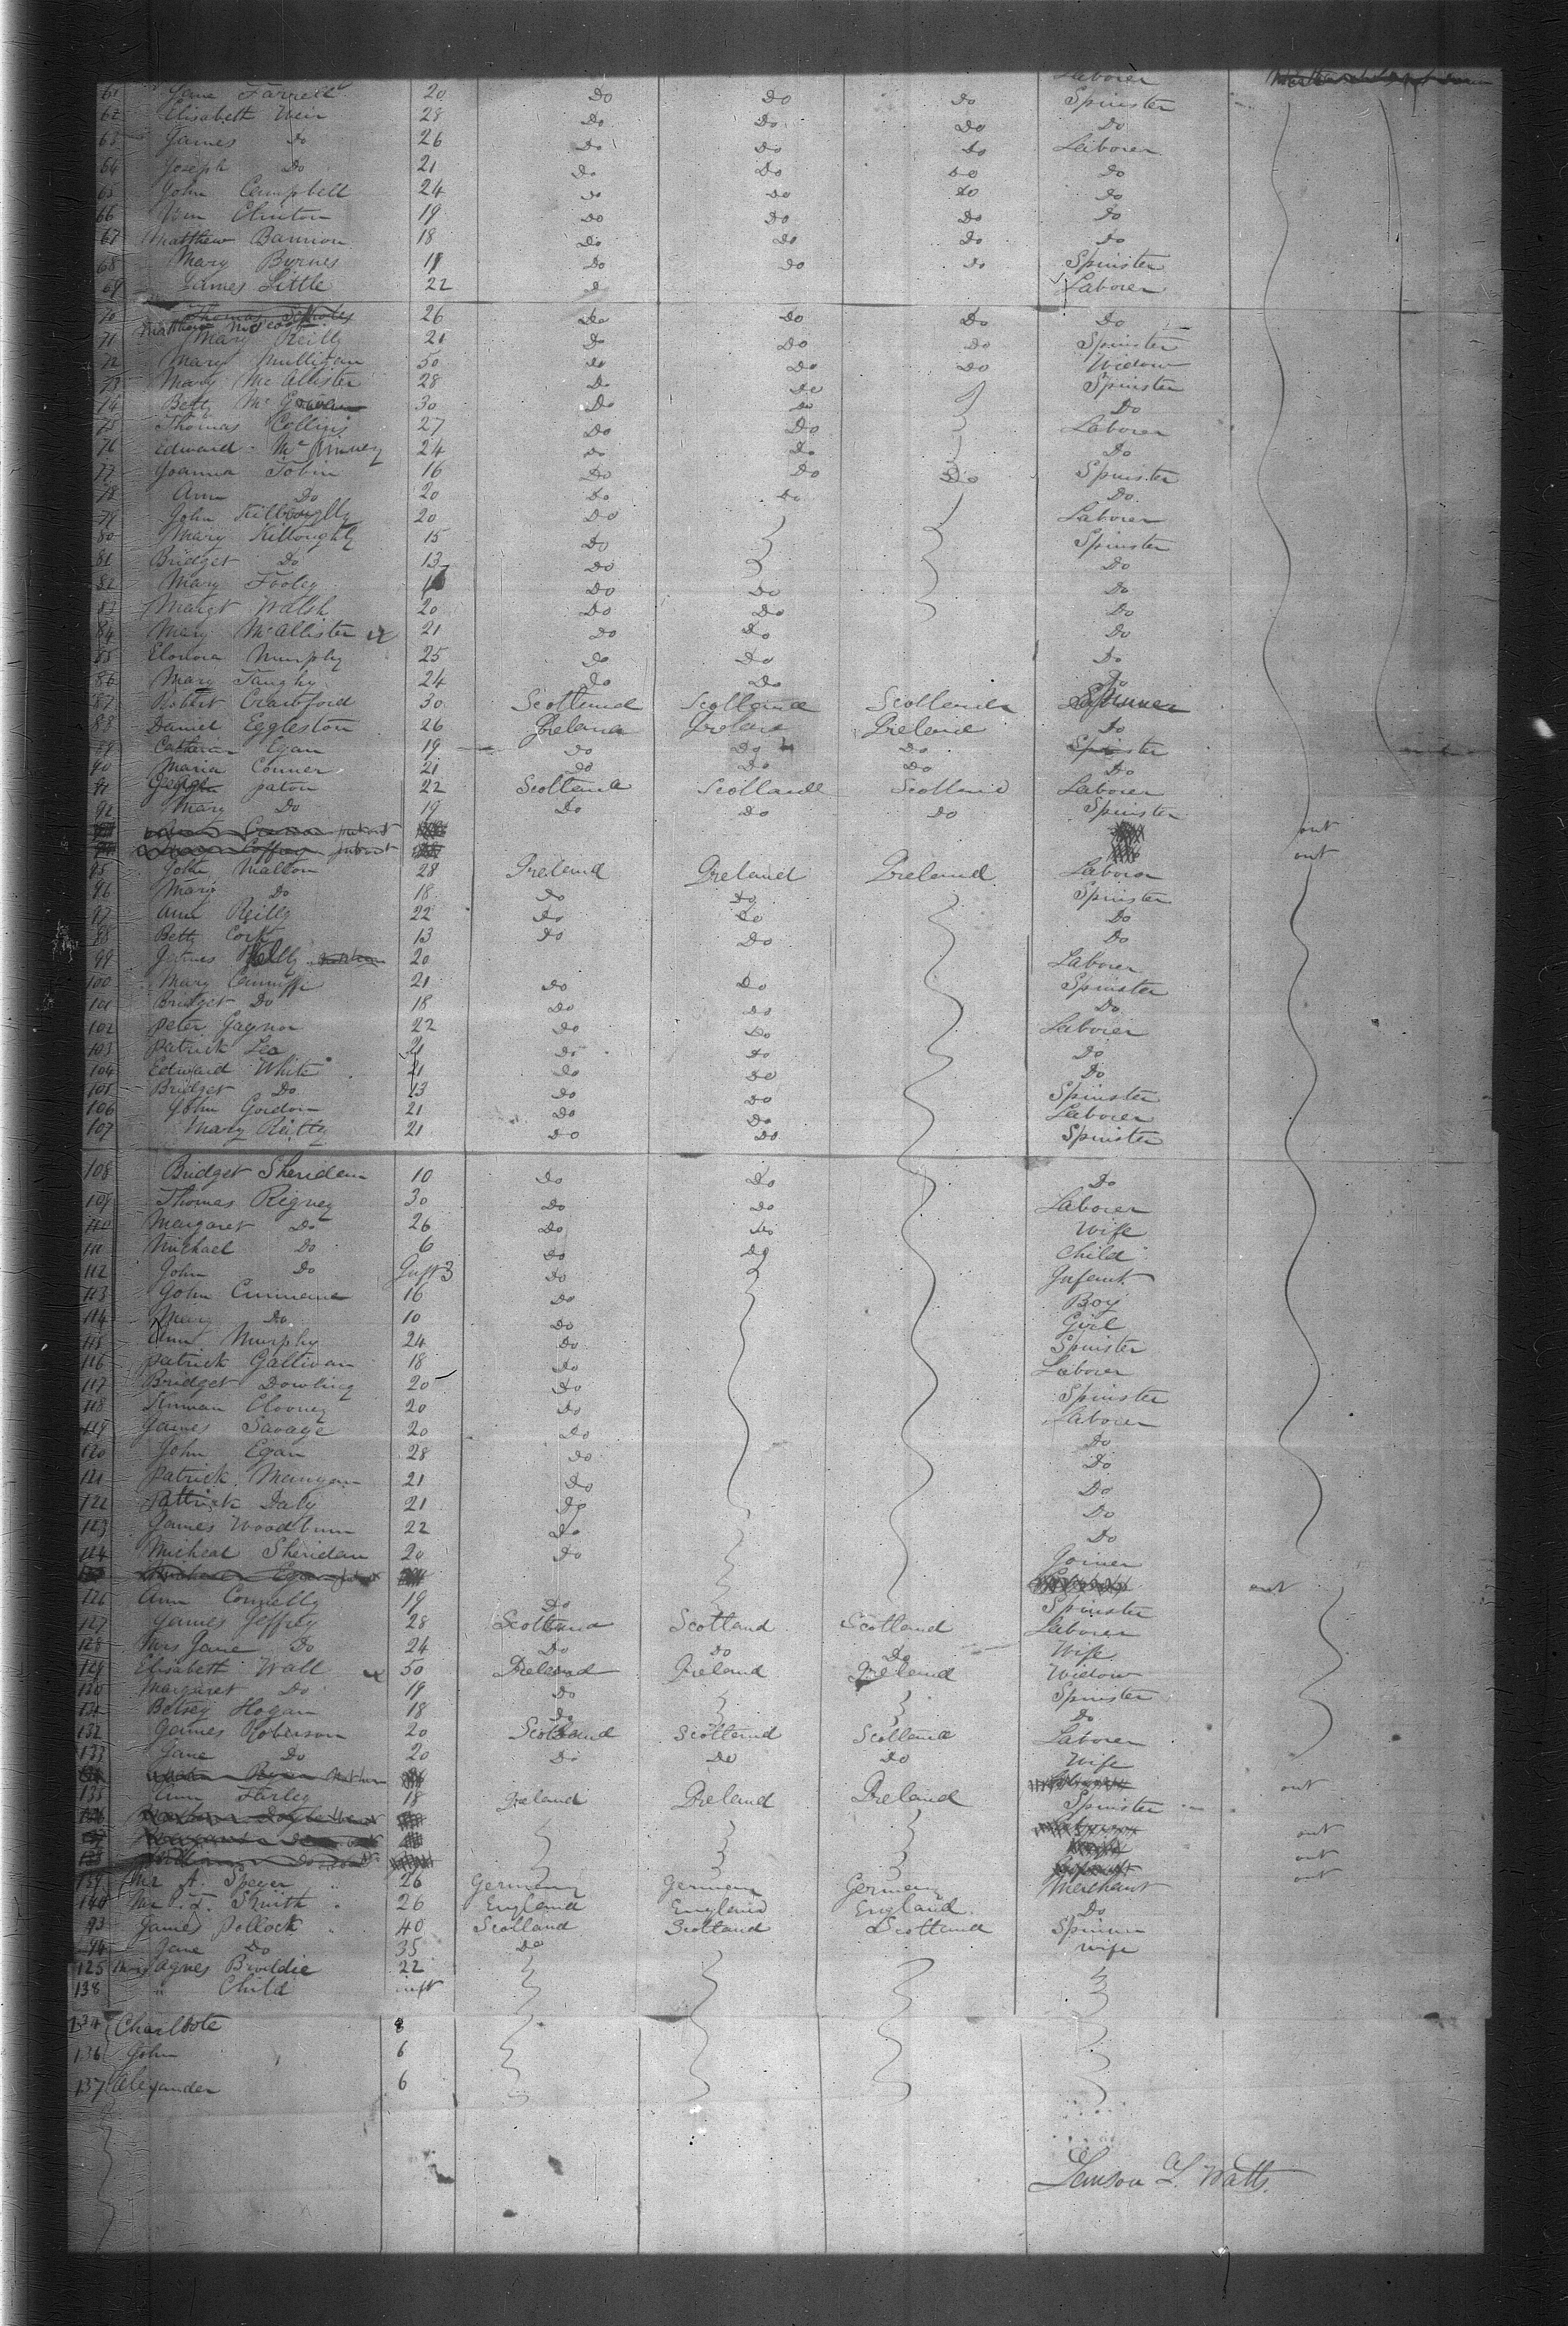 Laborer
61 Jane Farrell 20 Do Do Do Spinster
62 Elisabeth Weir 28 Do Do Do Do
63 James Do 26 Do Do Do Laborer
64 Joseph Do 21 Do Do Do Do
65 John Campbell 24 Do Do Do Do
66 Wm Clinton 19 Do Do Do Do
67 Matthew Bannon 18 Do Do Do Do
68 Mary Byrnes 19 Do Do Do Spinster
69 James Little 22 Do Laborer
70 Thomas 26 Do Do Do Do
71 Mary Reilly 21 Do Do Do Spinster
72 Mary Mulligan 50 Do Do Do Widow
73 Mary McAllister 28 Do Do Spinster
74 Betty 30 Do Do Do
75 Thomas Collins 27 Do Do Laborer
76 Edward 24 Do Do Do
77 Joanna Tobin 16 Do Do Do Spinster
78 Ann Do 20 Do Do Do
79 John 20 Do Laborer
80 Mary Killoughly 15 Do Spinster
81 Bridget Do 13 Do Do
82 Mary Fooley Do Do Do
83 Margt Walsh 20 Do Do Do
84 Mary McAllister 21 Do Do Do
85 Elonora Murphy 25 Do Do Do
86 Mary 24 Do Do Do
87 Robert Crawford 30 Scotland Scotland Scotland Spinner
88 Daniel Eggleston 26 Ireland Ireland Ireland Do
89 Catheran Egan 19 Do Do Do Spinster
90 Maria Conner 21 Do Do Do Do
91 paton 22 Scotland Scotland Scotland Laborer
92 Mary Do 19 Do Do Do Spinster
out
out
95 John Walton 28 Ireland Ireland Ireland Laborer
96 Mary Do 18 Do Do Spinster
97 Ann Reilly 22 Do Do Do
98 Betty 13 Do Do Do
99 James 20 Laborer
100 Mary Cunniffe 21 Do Do Spinster
101 Bridget Do 18 Do Do Do
102 Peter Gaynor 22 Do Do Laborer
103 Patrick Leo 21 Do Do Do
104 Edward White 21 Do Do Do
105 Bridget Do 13 Do Do Spinster
106 John Gordon 21 Do Do Laborer
107 Mary Reilly 21 Do Do Spinster
108 Bridget Sheridan 10 Do Do Do
109 Thomas Rigney 30 Do Do Laborer
110 Margaret Do 26 Do Do Wife
111 Michael Do 6 Do Do Child
112 John Do Inft 3 Do Infant
113 John Cunneane 16 Do Boy
114 Mary Do 10 Do Girl
115 Ann Murphy 24 Do Spinster
116 Patrick Gallivan 18 Do Laborer
117 Bridget Dowling 20 Do Spinster
118 Clooney 20 Do Laborer
119 James Savage 20 Do Do
120 John Egan 28 Do Do
121 Patrick Mangan 21 Do Do
122 Pattrick Daly 21 Do Do
123 James Woodburn 22 Do Do
124 Micheal Sheridan 20 Do Joiner
out
126 Ann Connelly 19 Do Spinster
127 James Jeffrey 28 Scotland Scotland Scotland Laborer
128 Mrs Jane Do 24 Do Do Do Wife
129 Elisabeth Wall 50 Ireland Ireland Ireland Widow
130 Margaret Do 19 Do Spinster
131 Betsey Hogan 18 Do Do
132 James Roberson 20 Scotland Scotland Scotland Laborer
133 Jane Do 20 Do Do Do Wife
out
135 Ann Farley 18 Ireland Ireland Ireland Spinster
out
out
out
139 Mr A. Speyer 26 Germany Germany Germany Merchant
140 Mr P. J. Smith 26 England England England Do
93 James Pollock 40 Scotland Scotland Scotland Spinner
94 Jane Do 35 Do wife
125 Mrs Agnes Browdie 22
138 " Child inft
134 Charllote 8
136 John 6
137 Alexander 6
Lemson L. Watts.